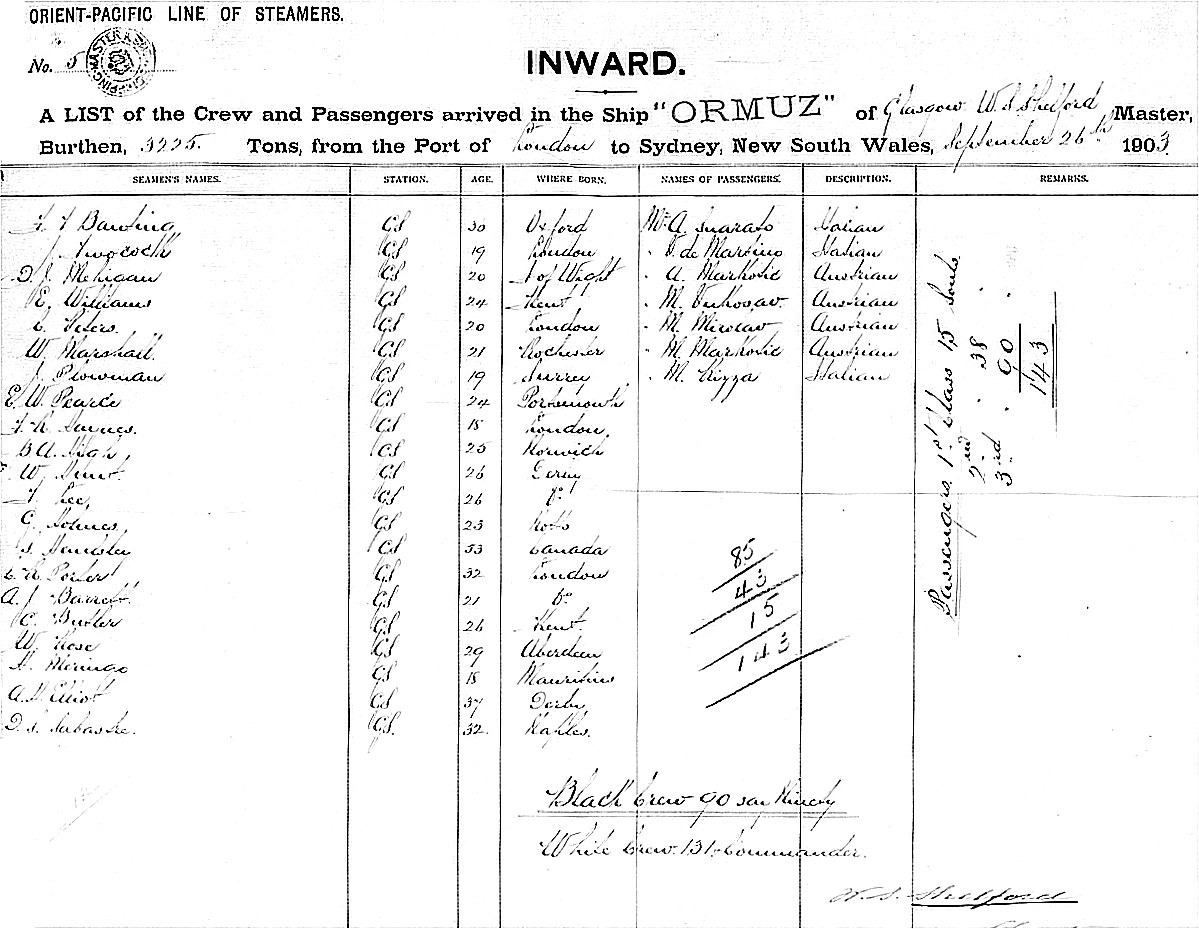 ORIENT-PACIFIC LINE OF STEAMERS.
No. 5
INWARD.
A LIST of the Crew and Passengers arrived in the Ship "ORMUZ" of Glasgow W. S. Shelford Master,
Burthen, 3225. Tons, from the Port of London to Sydney, New South Wales, September 26th 1903.
SEAMEN'S NAMES. STATION. AGE. WHERE BORN. NAMES OF PASSENGERS. DESCRIPTION. REMARKS.
GS 30 Oxford Mr A. Italian
J. GS 19 London " de Martino Italian
D. J. Mehigan GS 20 I of Wight " A. Markovic Austrian
E. Williams GS 24 Kent " M. Austrian
C. Peters. GS 20 London " M. Austrian
W. Marshall. GS 21 Rochester " M. Markovic Austrian
J. Plowman GS 19 Surrey " M. Rizza Italian
E. W. Pearce GS 24 Portsmouth
GS 18 London
GS 25 Norwich
W. GS 26 Derby
Lee, GS 26 Do
C. Holmes, GS 23 Notts
GS 33 Canada
Porter GS 32 London
A. J. Barrett. GS 21 Do
C. Butler GS 26 Kent.
W. Rose GS 29 Aberdeen
H. Meringo GS 18 Mauritius
A. H. Elliot GS 37 Derby
D. S. GS. 32. Naples.
Passengers 1st Class 15 Souls
2nd " 38 "
3rd " 90 "
143
85
43
15
143
Black Crew 90 say Ninety
White Crew. 131. Commander.
W. S. Shelford